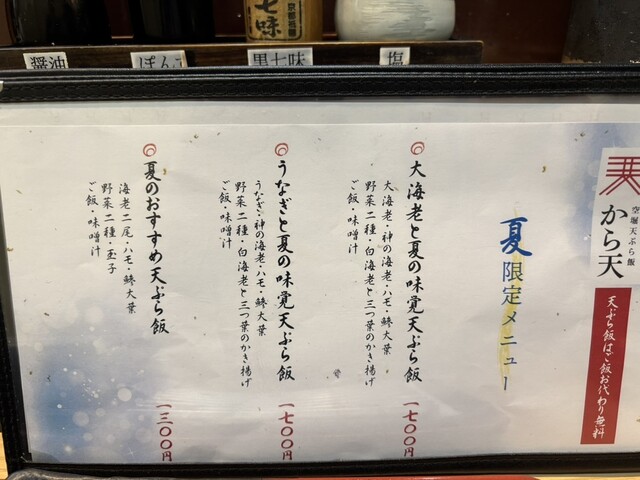 醤油
ぽん
黒七味
塩
七味
空堀天ぷら飯
から天
天ぷら飯はご飯お代わり無料
夏限定メニュー
大海老と夏の味覚天ぷら飯
大海老・神の海老・ハモ・鯵大葉
野菜二種・白海老と三つ葉のかき揚げ
ご飯・味噌汁
一七〇〇円
うなぎと夏の味覚天ぷら飯
うなぎ・神の海老・ハモ・鯵大葉
野菜二種・白海老と三つ葉のかき揚げ
ご飯・味噌汁
一七〇〇円
夏のおすすめ天ぷら飯
海老二尾・ハモ・鯵大葉
野菜二種・玉子
ご飯・味噌汁
一三〇〇円